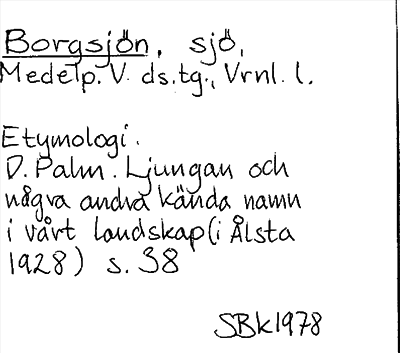 Borgsjön, sjö,
Medelp. V. ds.tg., Vrnl. l.
Etymologi.
D. Palm. Ljungan och
några andra kända namn
i vårt landskap (i Ålsta
1928) s. 38
SBk1978